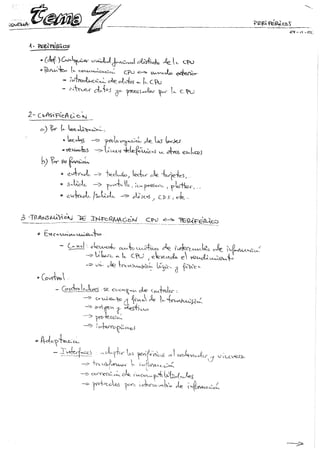 Tema 7
PERIFÉRICOS
1- PERIFÉRICOS
• (def) Cualquier unidad funcional distinta de la CPU
• Permiten la comunicación CPU ↔ mundo exterior
- introducción de datos en la CPU
- extraer datos ya procesados por la CPU
2- CLASIFICACIÓN
a) Por la localización:
• locales → prolongación de los buses
• remotos → líneas telefónicas u otros enlaces
b) Por su función
• entrada → teclado, lector de tarjetas,
• salida → pantalla, impresora, plotter, ...
• entrada/salida → discos, CDs, etc.
3- TRANSMISIÓN DE INFORMACIÓN CPU ↔ PERIFÉRICO
• Encaminamiento
- Canal: elemento automático de intercambio de información
→ libera a la CPU, elevando el rendimiento
→ vía de transmisión lógica y física
• Control
- Controladores se encargan de controlar:
→ comienzo y final de la transmisión
→ origen y destino
→ protección
→ interrupciones
• Adaptación
- Interfaces: adaptar los periféricos al ordenador, y viceversa
→ transforman la información
→ corrección de incompatibilidades
→ protocolos para intercambio de información